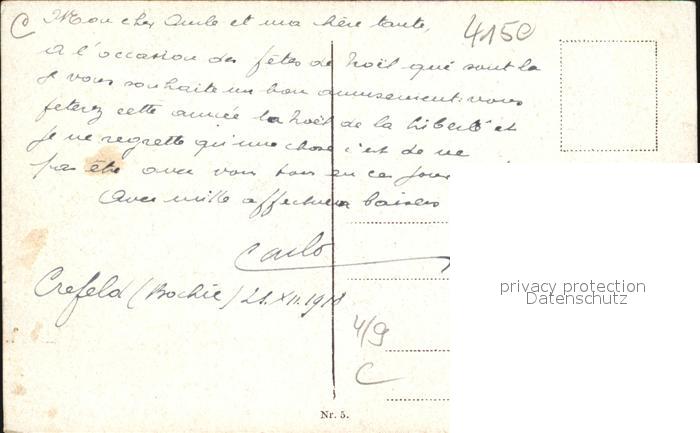 Mon cher Oncle et ma chère tante,
4150
A l'occasion des fêtes de Noël qui sont là
je vous souhaite un bon amusement: vous
feterez cette année la Noël de la liberté et
je ne regrette qu'une chose c'est de ne
pas être avec vous tous en ces jours
Avec mille affectueux baisers
Carlo
Crefeld (Bochie) 21.XII.1918
privacy protection
Datenschutz
4/9
C
Nr. 5.